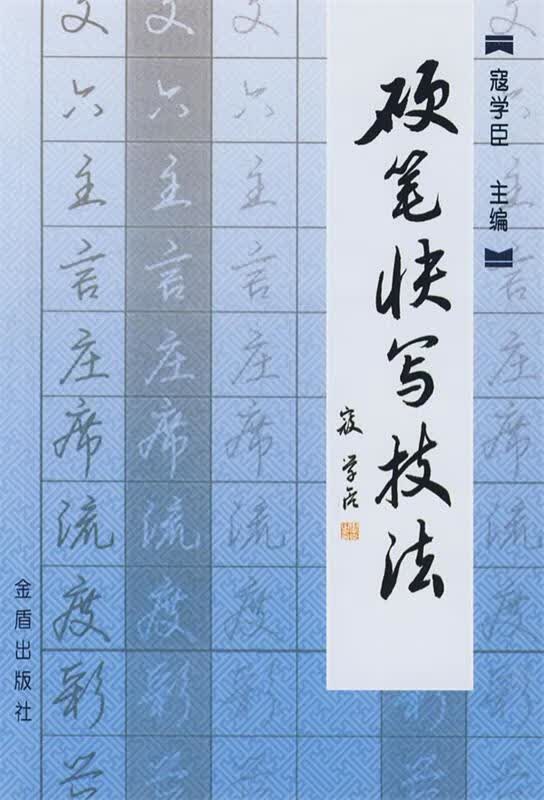 寇学臣 主编
硬笔快写技法
寇学臣
文六主言庄席流度彩
文六主言庄席流度彩
文六主言庄席流度彩
金盾出版社